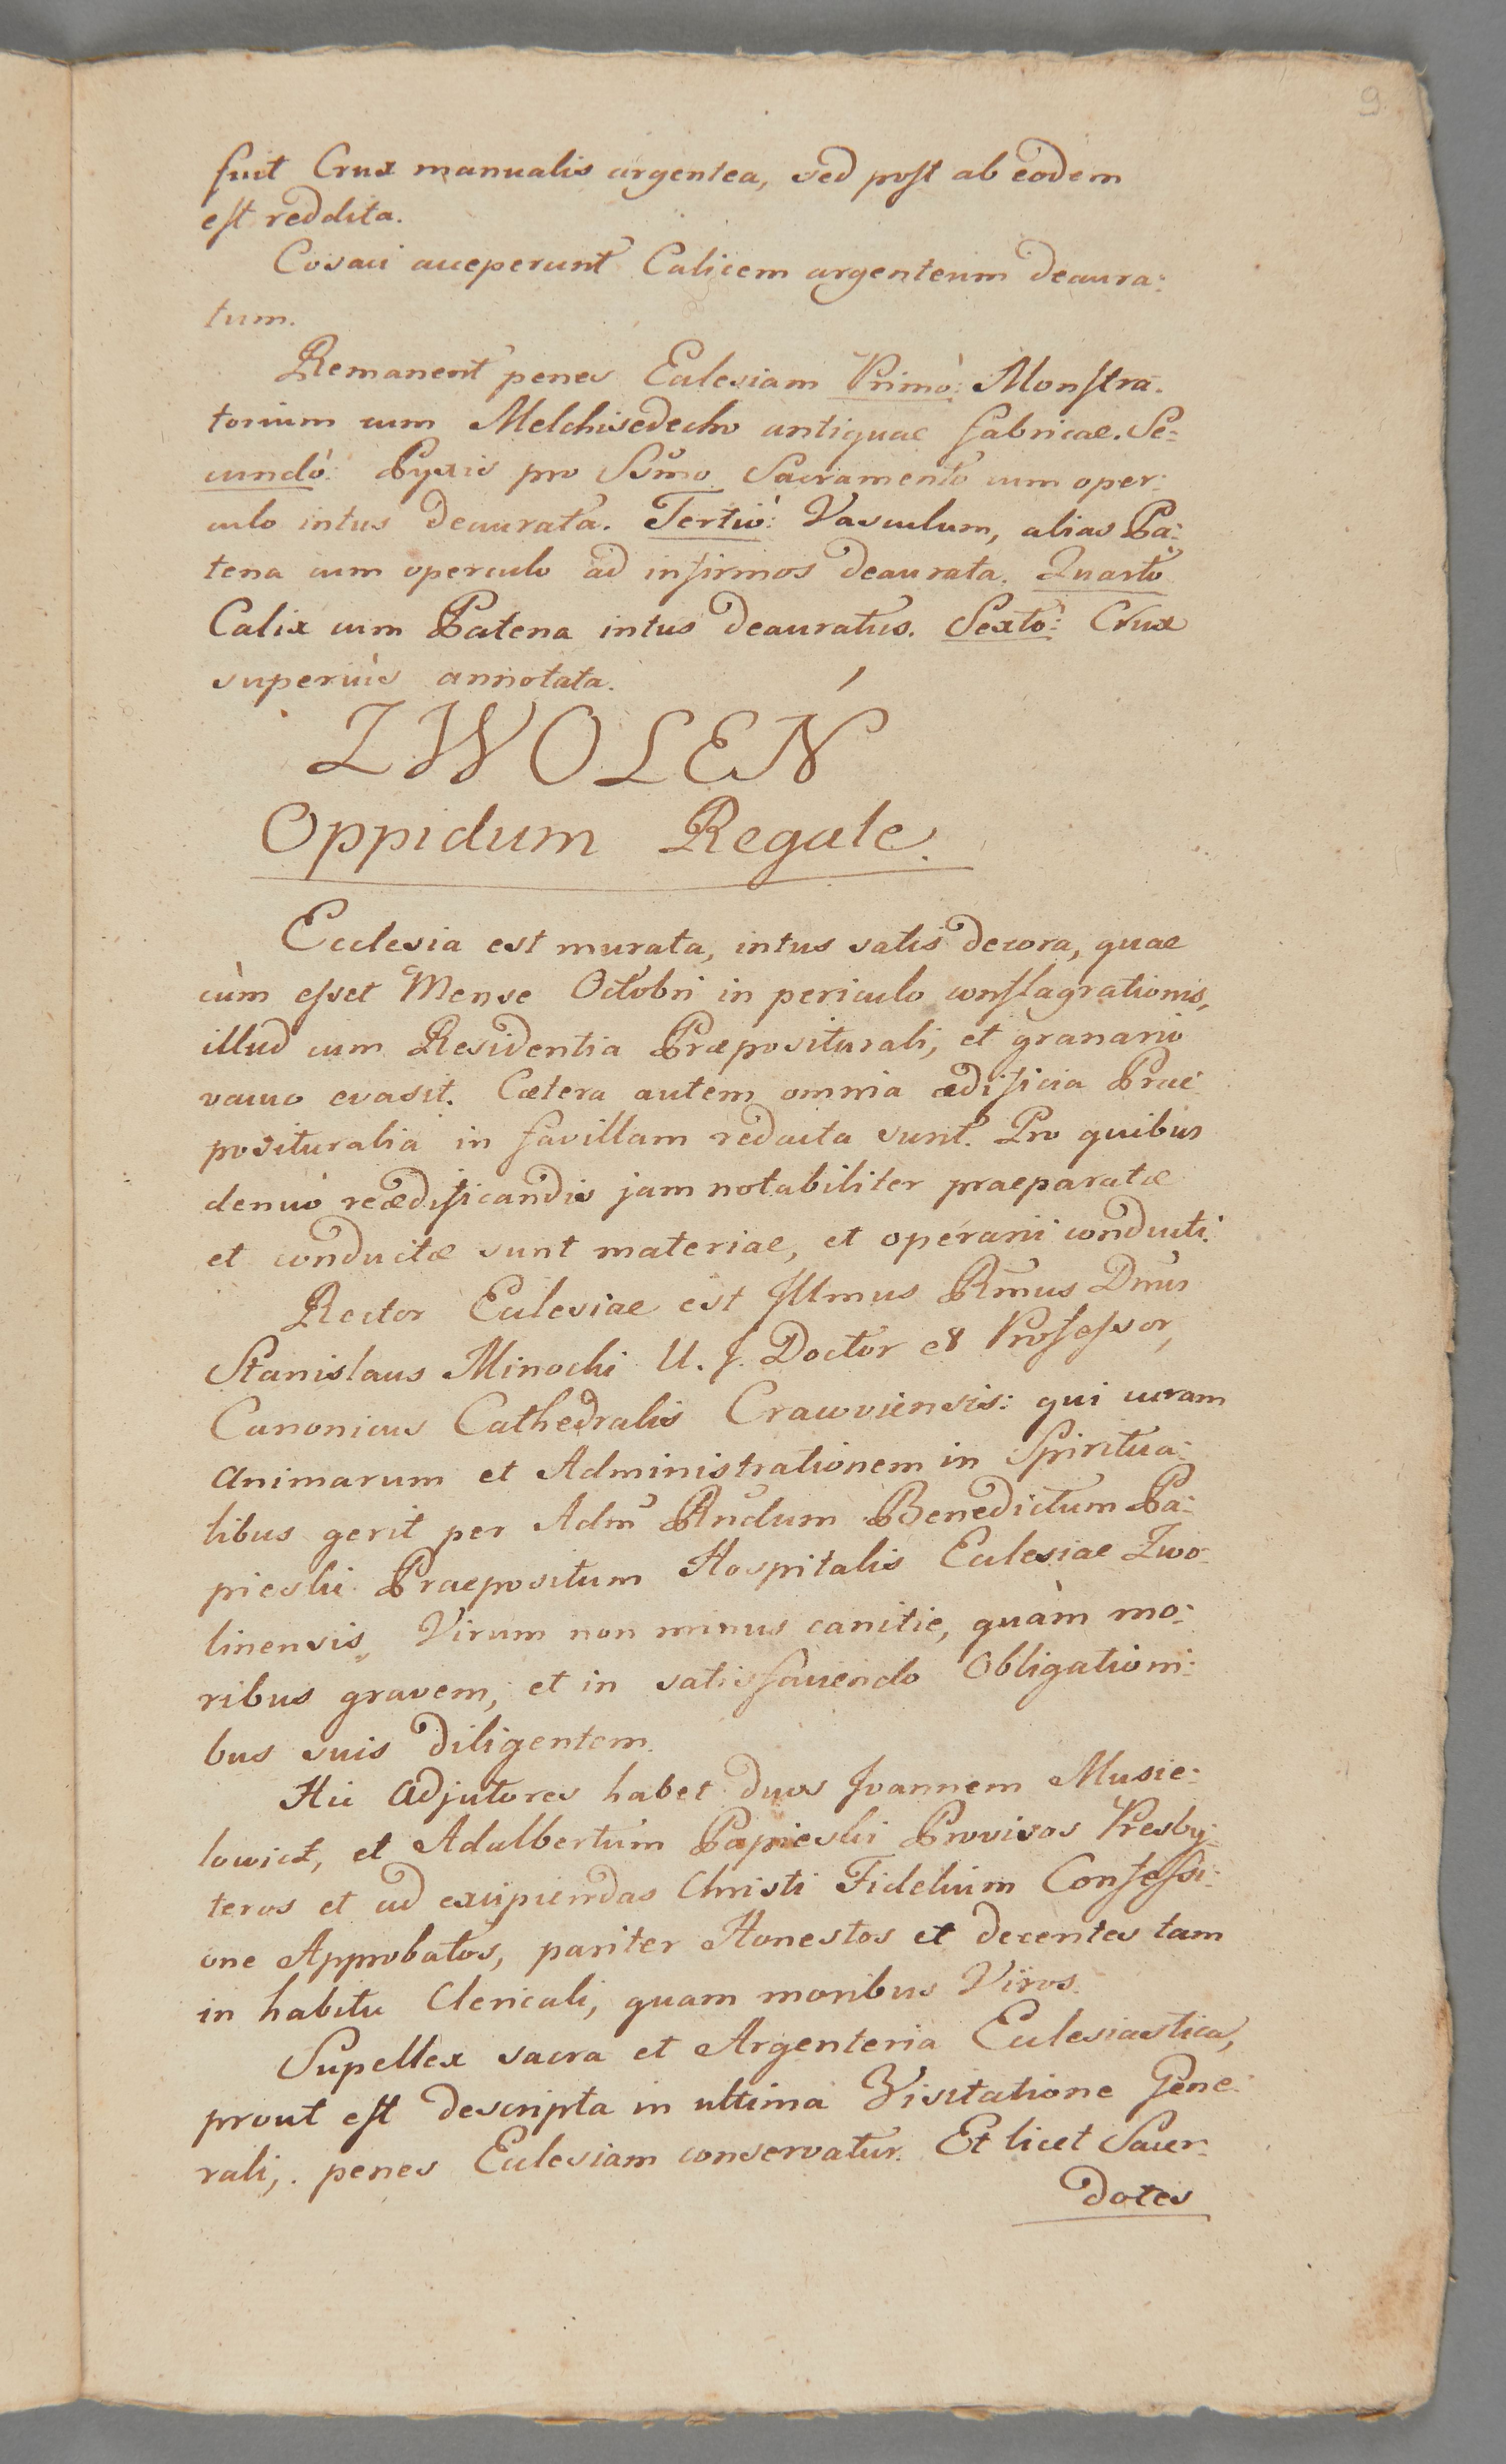 9
fuit Crux manualis argentea, sed post ab eodem
est reddita.
Cosaci acceperunt Calicem argenteum deaura:
tum.
Remanent penes Ecclesiam Primò: Monstra-
torium cum Melchisedecho antiquae fabricae. Se:
cundò: Pyxis pro Ssmo Sacramento cum oper:
culo intus deaurata. Tertiò: Vasculum, alias Pa:
tena cum operculo ad infirmos deaurata. Quartò
Calix cum Patena intus deauratus. Sextò: Crux
superiùs annotata.
ZWOLEŃ
Oppidum Regale.
Ecclesia est murata, intus satis decora, quae
cùm esset Mense Octobri in periculo conflagrationis,
illud cum Residentia Præpositurali, et granario
vacuo evasit. Cætera autem omnia ædificia Prae
posituralia in favillam redacta sunt. Pro quibus
denuò reædificandis jam notabiliter praeparatæ
et conductæ sunt materiae, et operarii conducti.
Rector Ecclesiae est Illmus Rmus Dnus
Stanislaus Minocki U. J. Doctor et Professor,
Canonicus Cathedralis Cracoviensis: qui curam
Animarum et Administrationem in Spiritua:
libus gerit per Adm Rndum Benedictum Pa:
pieski Praepositum Hospitalis Ecclesiae Zwo
linensis, Virum non minus canitie, quàm mo:
ribus gravem, et in satisfaciendo Obligationi:
bus suis diligentem.
Hic Adjutores habet duos Joannem Musie:
lowicz, et Adalbertum Papieski Provisos Presby:
teros et ad excipiendas Christi Fidelium Confessi:
one Approbatos, pariter Honestos et decentes tam
in habitu Clericali, quam moribus Viros.
Supellex sacra et Argenteria Ecclesiastica,
prout est descripta in ultima Visitatione Gene:
rali, penes Ecclesiam conservatur. Et licet Sacer:
dotes